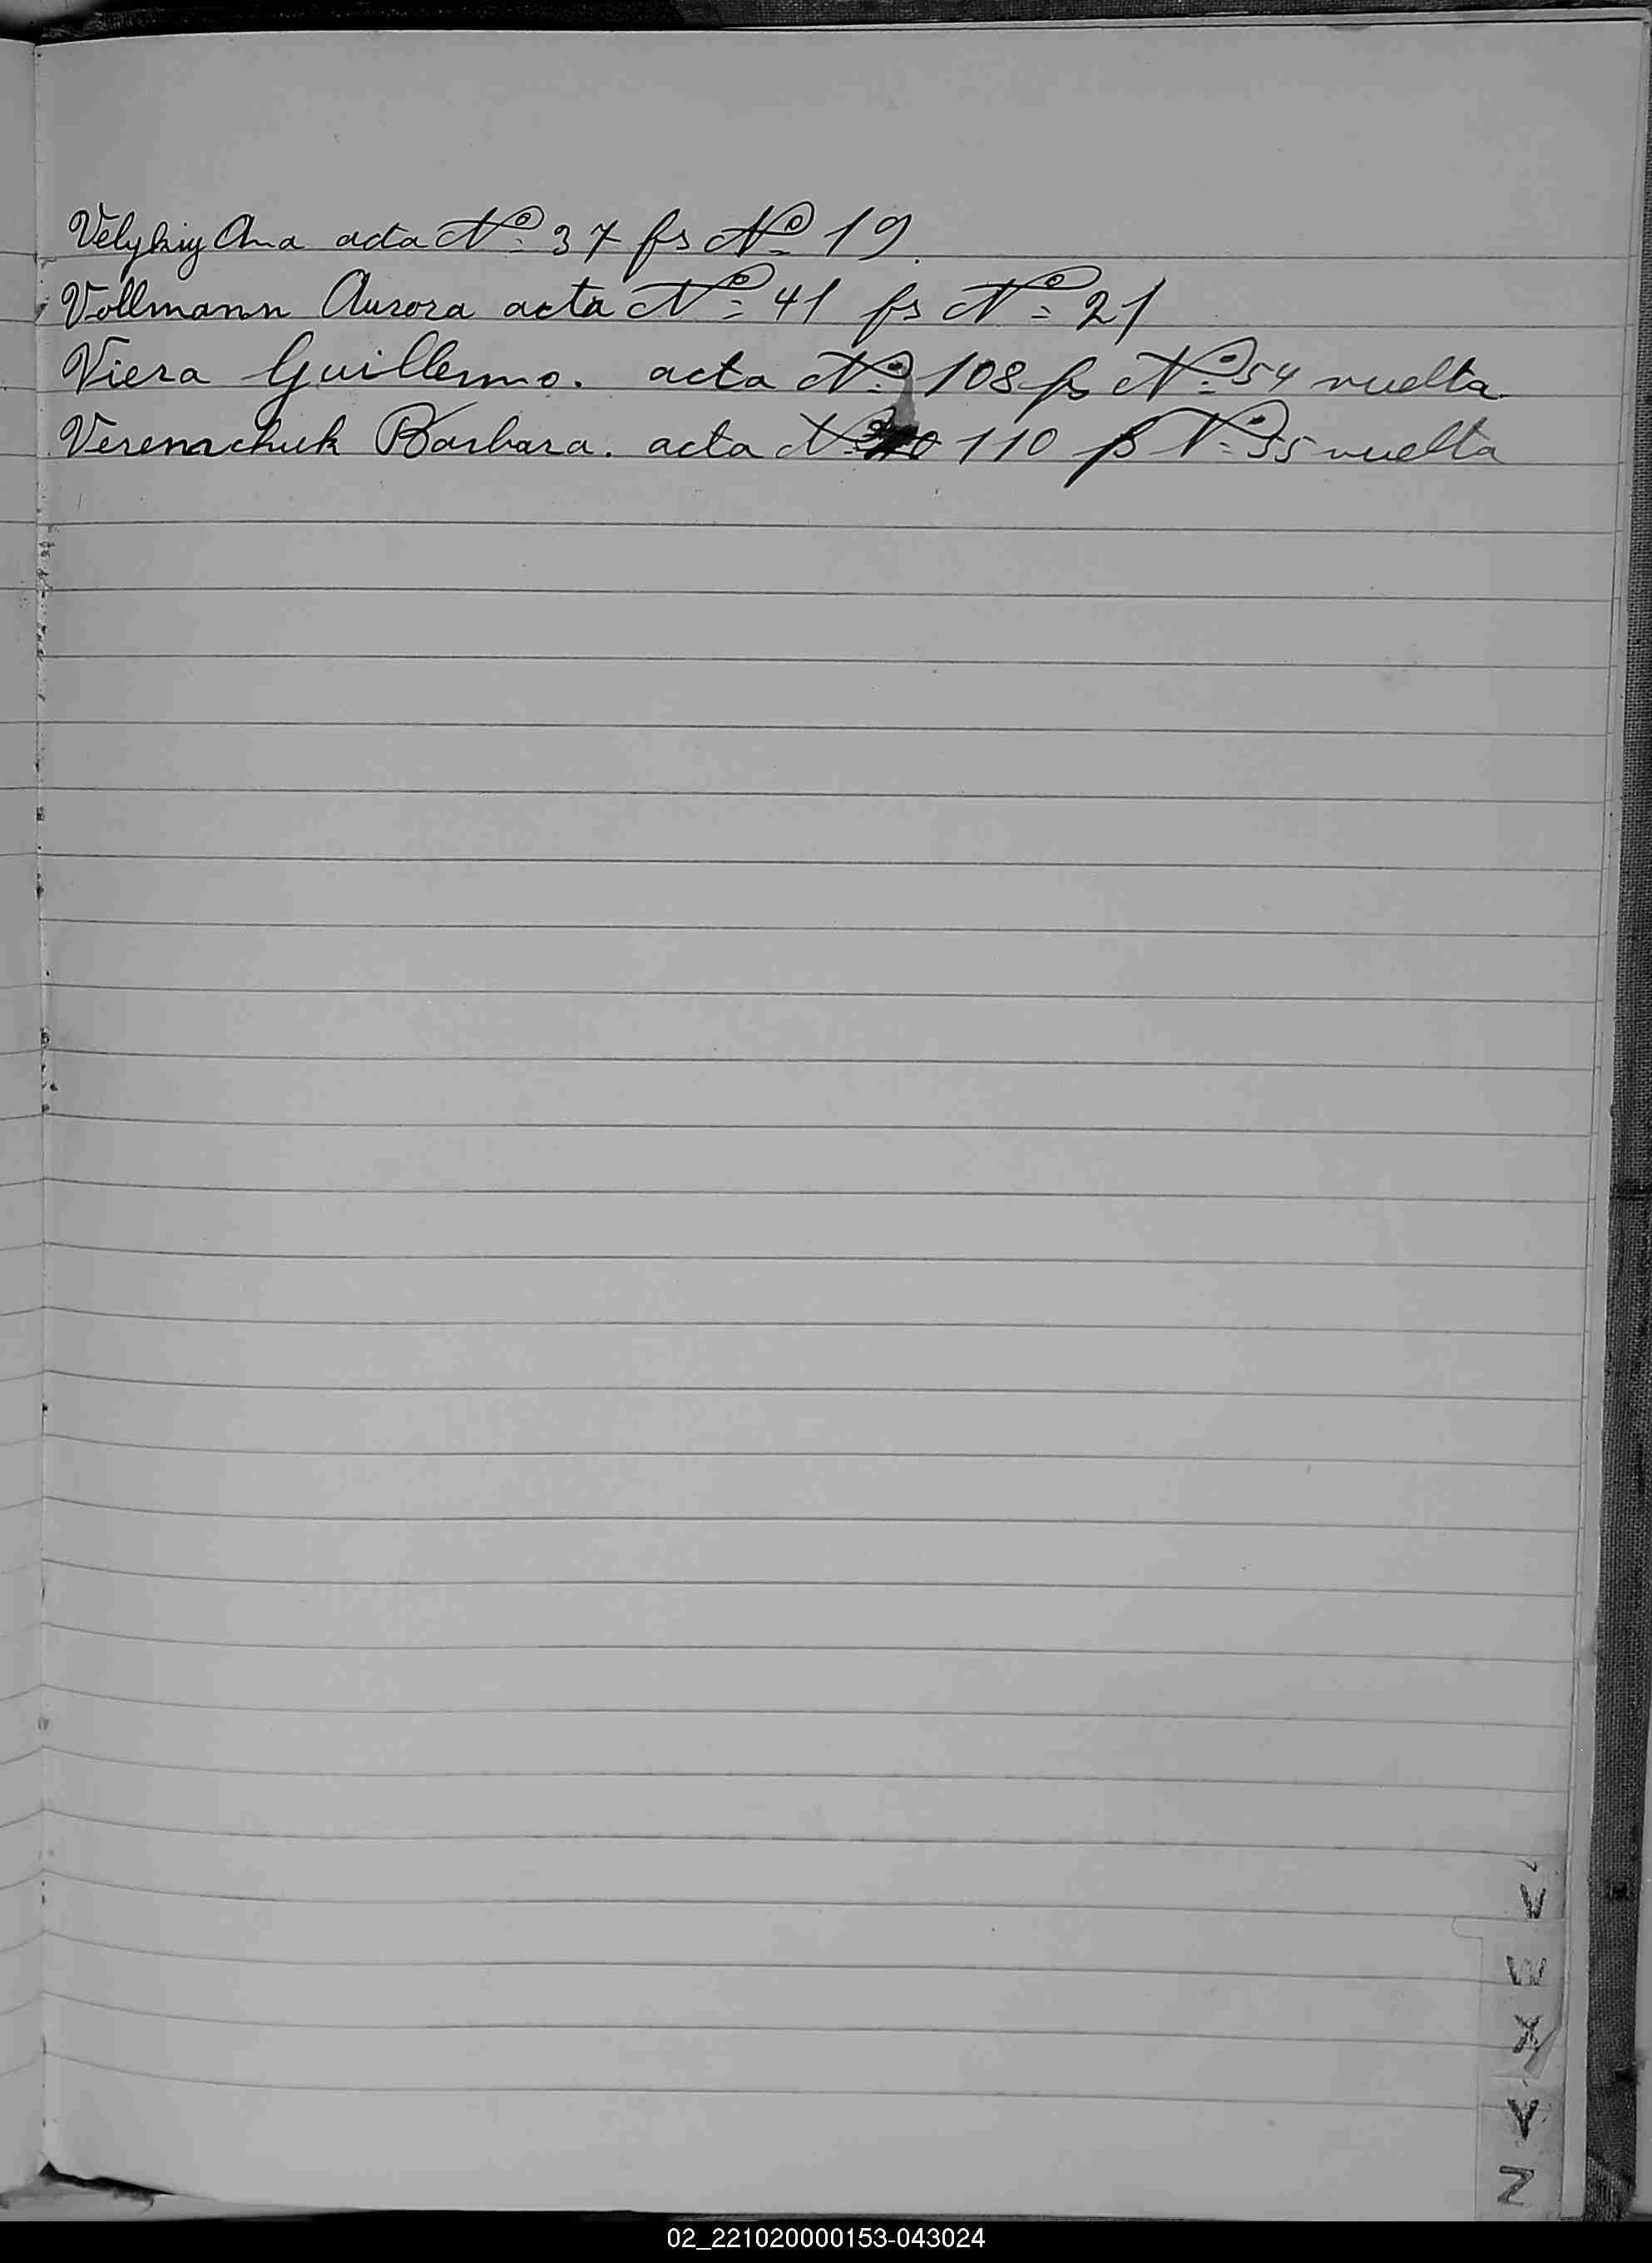 Velykiy Ana acta Nº 37 fs Nº 19.
Vollmann Aurora acta Nº 41 fs Nº 21
Viera Guillermo. acta Nº 108 fs Nº 54 vuelta.
Barbara. acta Nº 110 fs Nº 55 vuelta
V
W
X
Y
Z
02_221020000153-043024